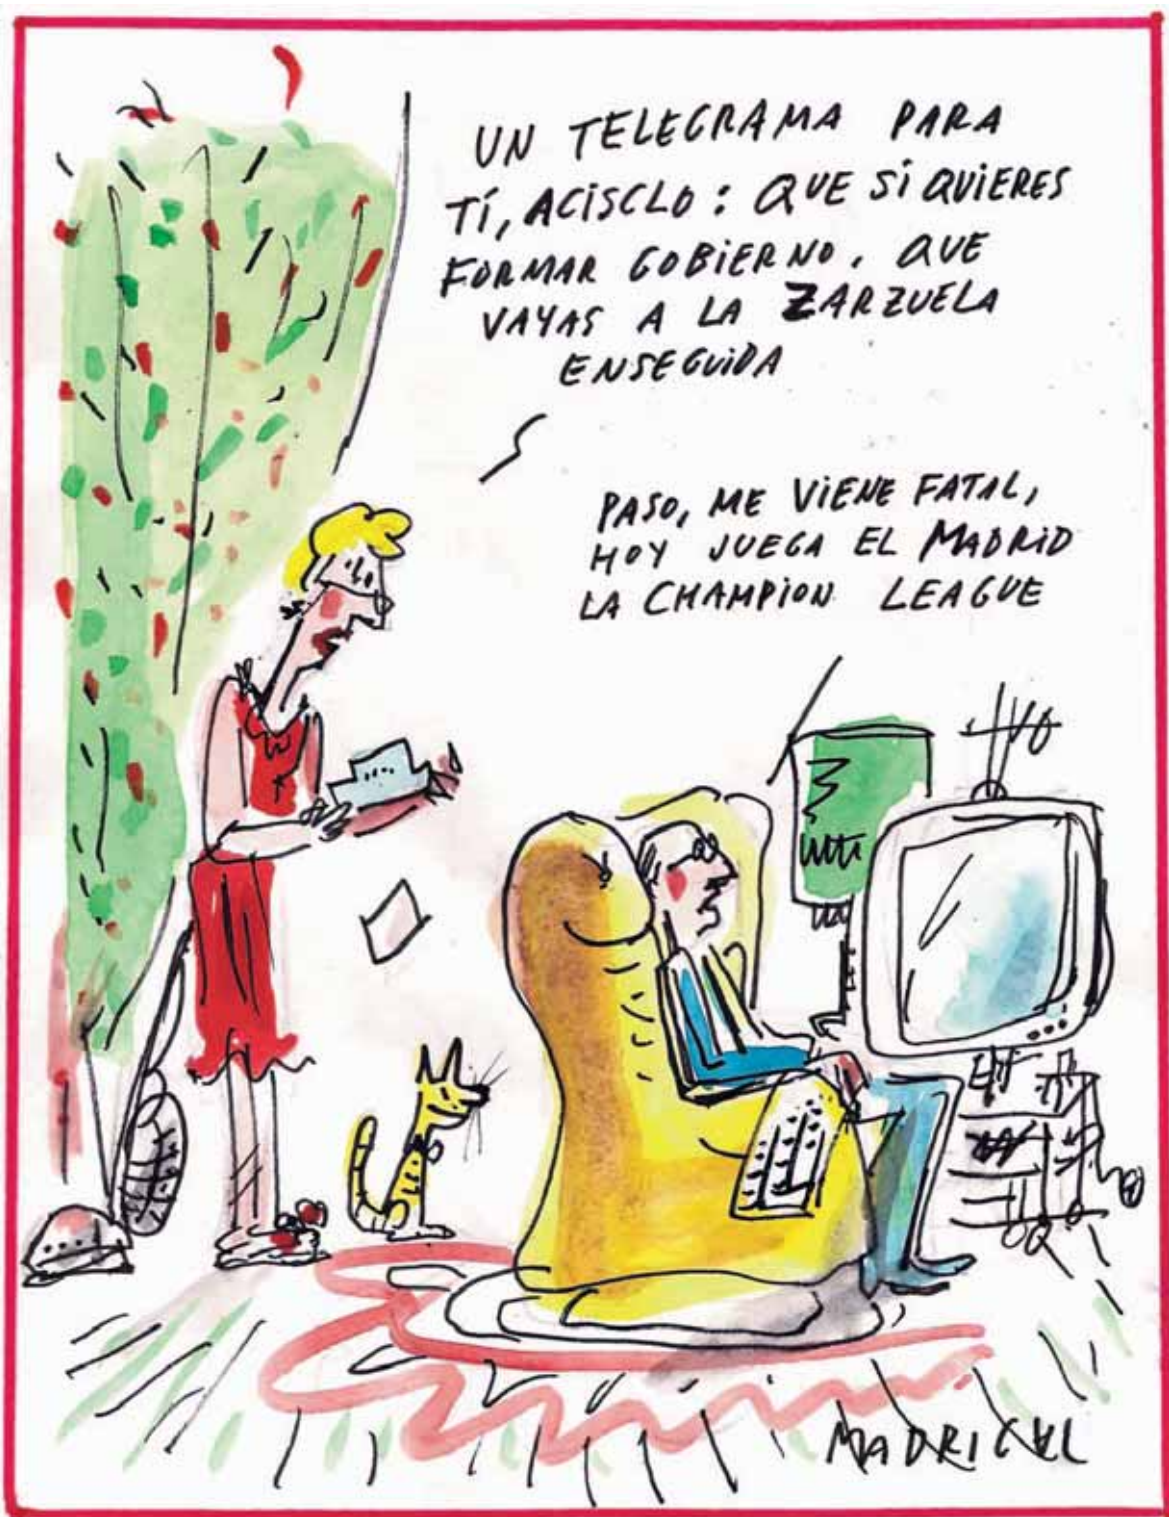 UN TELEGRAMA PARA
TÍ, ACISCLO: QUE SI QUIERES
FORMAR GOBIERNO, QUE
VAYAS A LA ZARZUELA
ENSEGUIDA
PASO, ME VIENE FATAL,
HOY JUEGA EL MADRID
LA CHAMPION LEAGUE
MADRIGAL